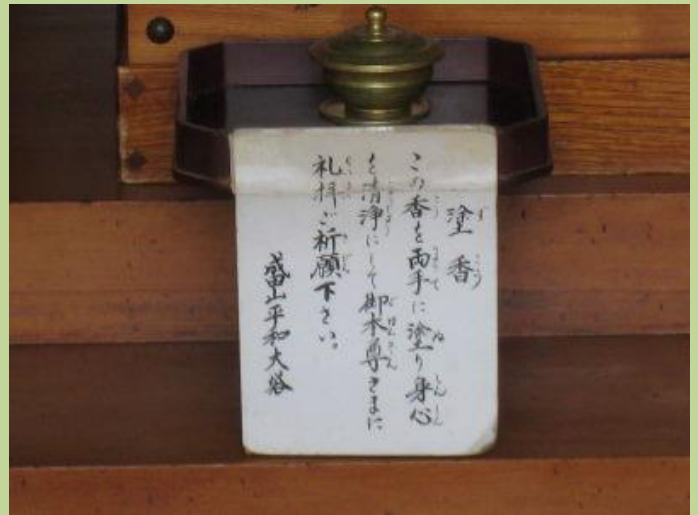 塗香
この香を両手に塗り身心
を清浄にして御本尊さまに
礼拝ご祈願下さい。
成田山平和大塔